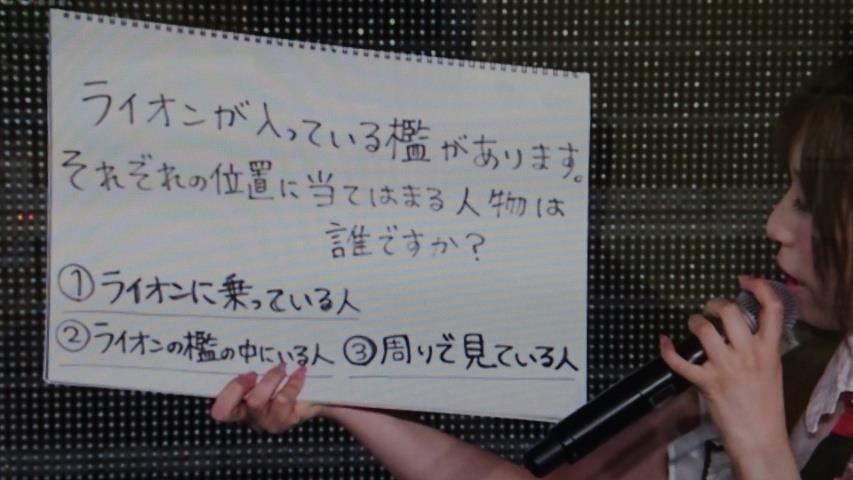 ライオンが入っている檻があります。
それぞれの位置に当てはまる人物は
誰ですか?
①ライオンに乗っている人
②ライオンの檻の中にいる人 ③周りで見ている人